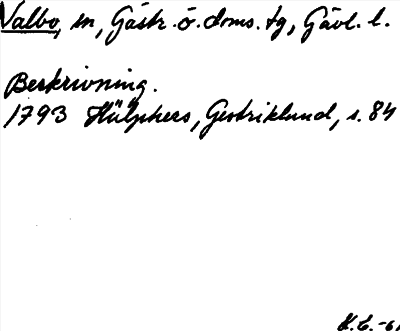 Valbo, sn, Gästr. ö. doms. tg, Gävl. l.
Beskrivning.
1793 Hülphers, Gestriklund, s. 84
K.C.-61